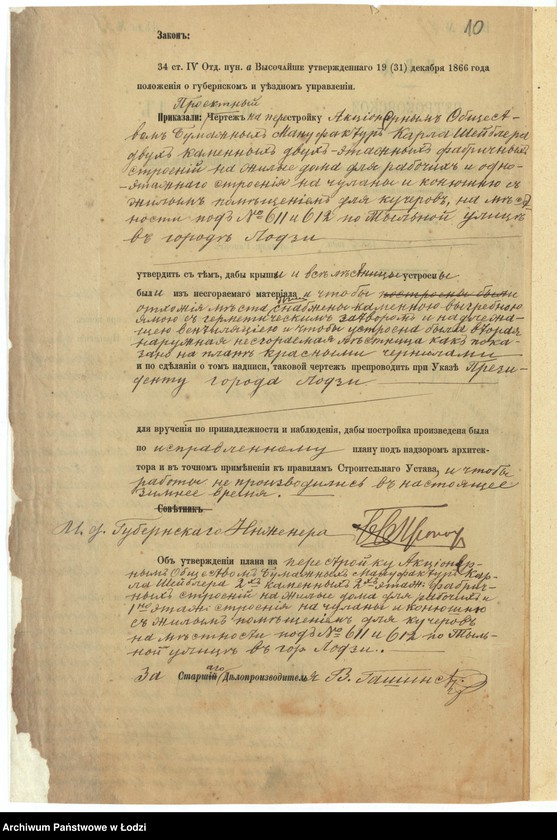 10
Законъ:
34 ст. IV Отд. пун. а Высочайше утвержденнаго 19 (31) декабря 1866 года
положенія о губернскомъ и уѣздномъ управленіи.
Проектный
Приказали: Чертежъ на перестройку Акціонернымъ Общест-
вомъ Бумажныхъ Мануфактуръ Карла Шейблера
двухъ каменныхъ двухъ-этажныхъ фабричныхъ
строеній на жилые дома для рабочихъ и одно-
-этажнаго строенія на чуланы и конюшню съ
жилымъ помѣщеніемъ для кучеровъ, на мѣст-
ности подъ № 611 и 612 по Тыльной улицѣ
въ городѣ Лодзи
утвердить съ тѣмъ, дабы крыши и всѣ лѣстницы устроены
были изъ несгораемаго матеріала и чтобы построены были
отхожія мѣста снабжены каменною выгребною
ямою съ герметическимъ затворомъ и надлежа-
щею вентиляціею и чтобы устроена была вторая
наружная несгораемая лѣстница какъ пока-
зано на планѣ красными чернилами
и по сдѣланіи о томъ надписи, таковой чертежъ препроводить при Указѣ Прези-
денту города Лодзи
для врученія по принадлежности и наблюденія, дабы постройка произведена была
по исправленному плану подъ надзоромъ архитек-
тора и въ точномъ примѣненіи къ правиламъ Строительнаго Устава, и чтобы
работы не производились въ настоящее
зимнее время.
Совѣтникъ
И. д. Губернскаго Инженера
Объ утвержденіи плана на перестройку Акціонер-
нымъ Обществомъ Бумажныхъ Мануфактуръ Кар-
ла Шейблера 2хъ каменныхъ 2хъ этаж. фабрич-
ныхъ строеній на жилые дома для рабочихъ и
1но этаж. строенія на чуланы и конюшню
съ жилымъ помѣщеніемъ для кучеровъ
на мѣстности подъ № 611 и 612 по Тыль-
ной улицѣ въ гор. Лодзи.
За Старшаго Дѣлопроизводителя В.
Archiwum Państwowe w Łodzi